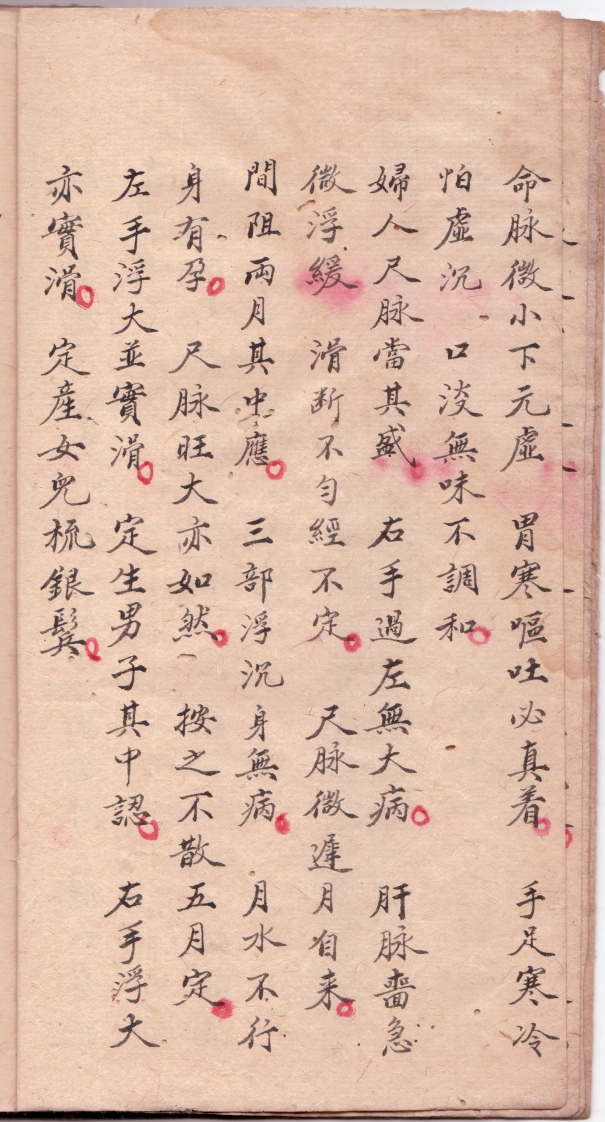 命脉微小下元虛 胃寒嘔吐必真着 手足寒冷
怕虛沉 口淡無味不調和
婦人尺脉當其盛 右手過左無大病 肝脉嗇急
微浮緩 滑断不匀經不定 尺脉微遲月自来
間阻两月其中應 三部浮沉身無病 月水不行
身有孕 尺脉旺大亦如然 按之不散五月定
左手浮大並實滑 定生男子其中認 右手浮大
亦實滑 定産女兒梳銀鬓